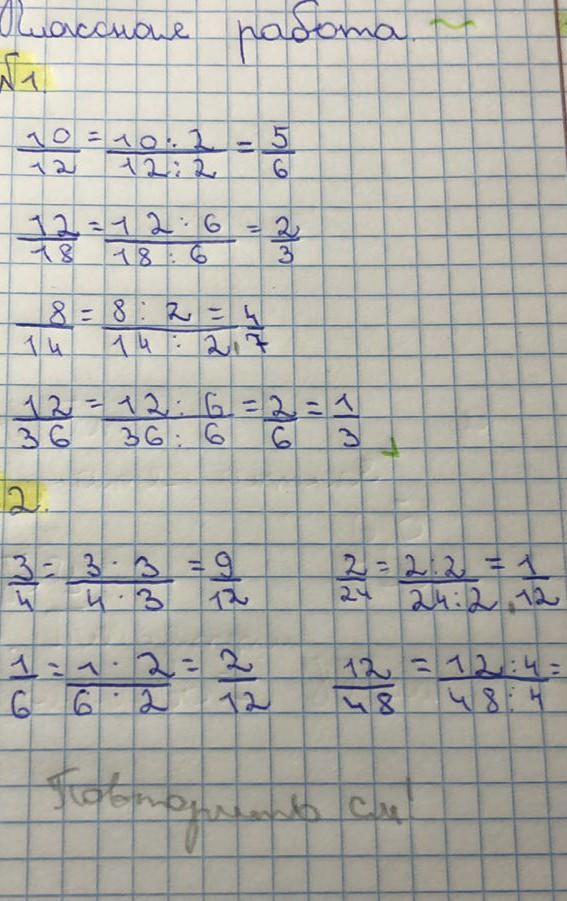 Классная работа.
№1.
10/12 = 10:2/12:2 = 5/6
12/18 = 12:6/18:6 = 2/3
8/14 = 8:2/14:2 = 4/7
12/36 = 12:6/36:6 = 2/6 = 1/3
2.
3/4 = 3·3/4·3 = 9/12 2/24 = 2:2/24:2 = 1/12
1/6 = 1·2/6·2 = 2/12 12/48 = 12:4/48:4 =
Повторить см!